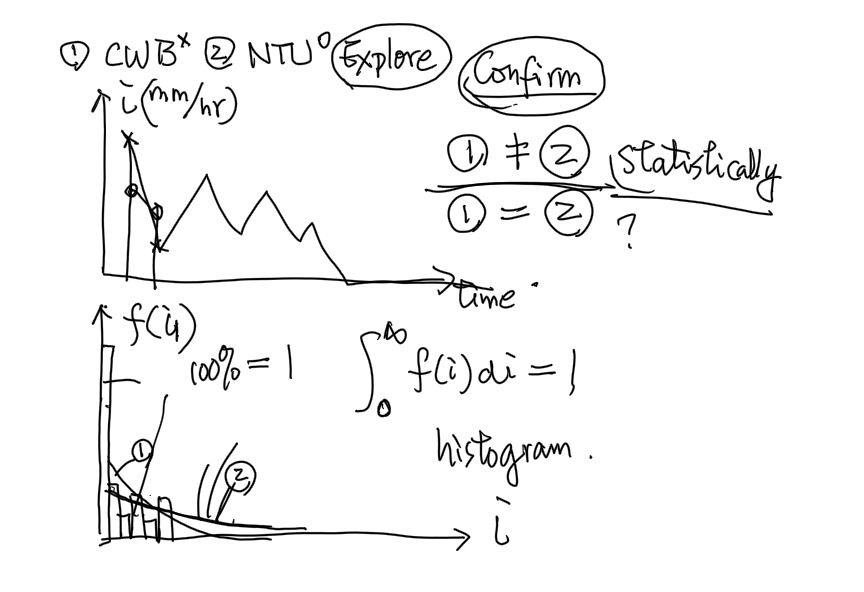 ① CWBˣ ② NTU⁰ Explore Confirm
i(mm/hr)
① ≠ ② statistically
① = ② ?
time
f(i)
100% = 1
∫₀^∞ f(i) di = 1
histogram.
①
②
i